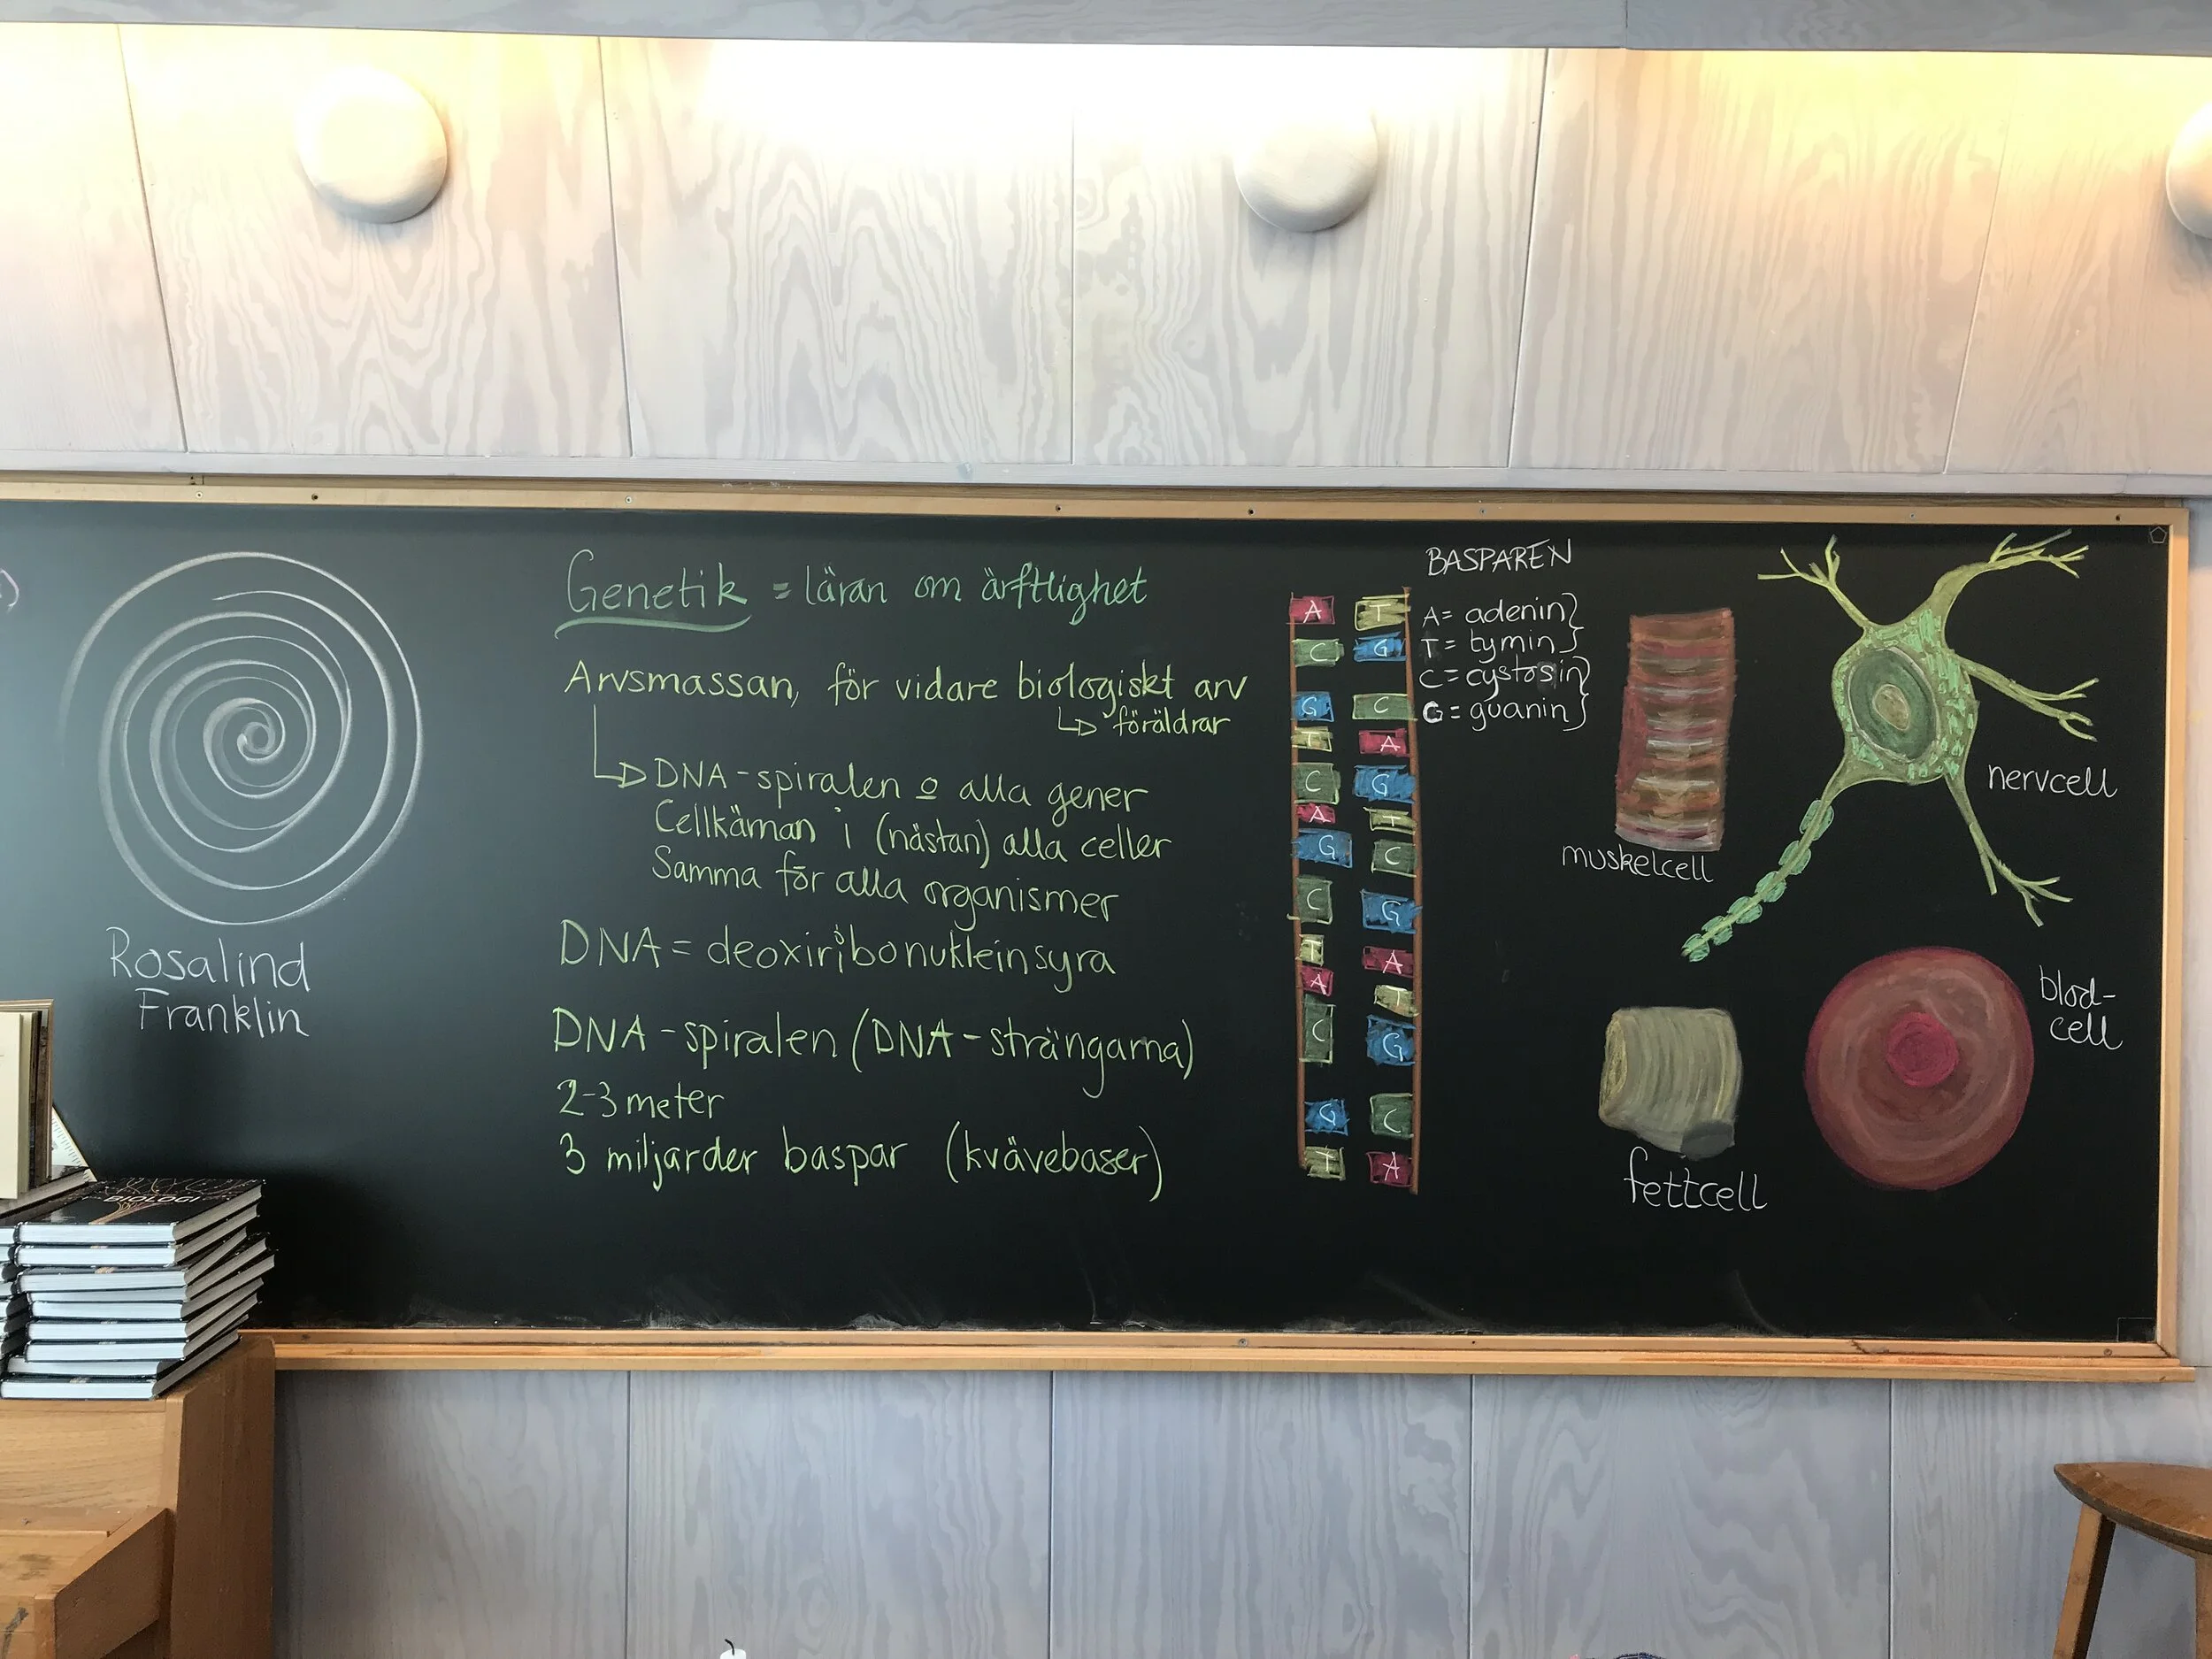 Rosalind
Franklin
BIOLOGI
Genetik = läran om ärftlighet
Arvsmassan, för vidare biologiskt arv
föräldrar
DNA-spiralen o alla gener
Cellkärnan i (nästan) alla celler
Samma för alla organismer
DNA = deoxiribonukleinsyra
DNA-spiralen (DNA-strängarna)
2-3 meter
3 miljarder baspar (kvävebaser)
A T
C G
G C
T A
C G
A T
G C
C G
T A
A T
C G
G C
T A
BASPAREN
A = adenin}
T = tymin}
C = cystosin}
G = guanin}
muskelcell
nervcell
fettcell
blod-
cell